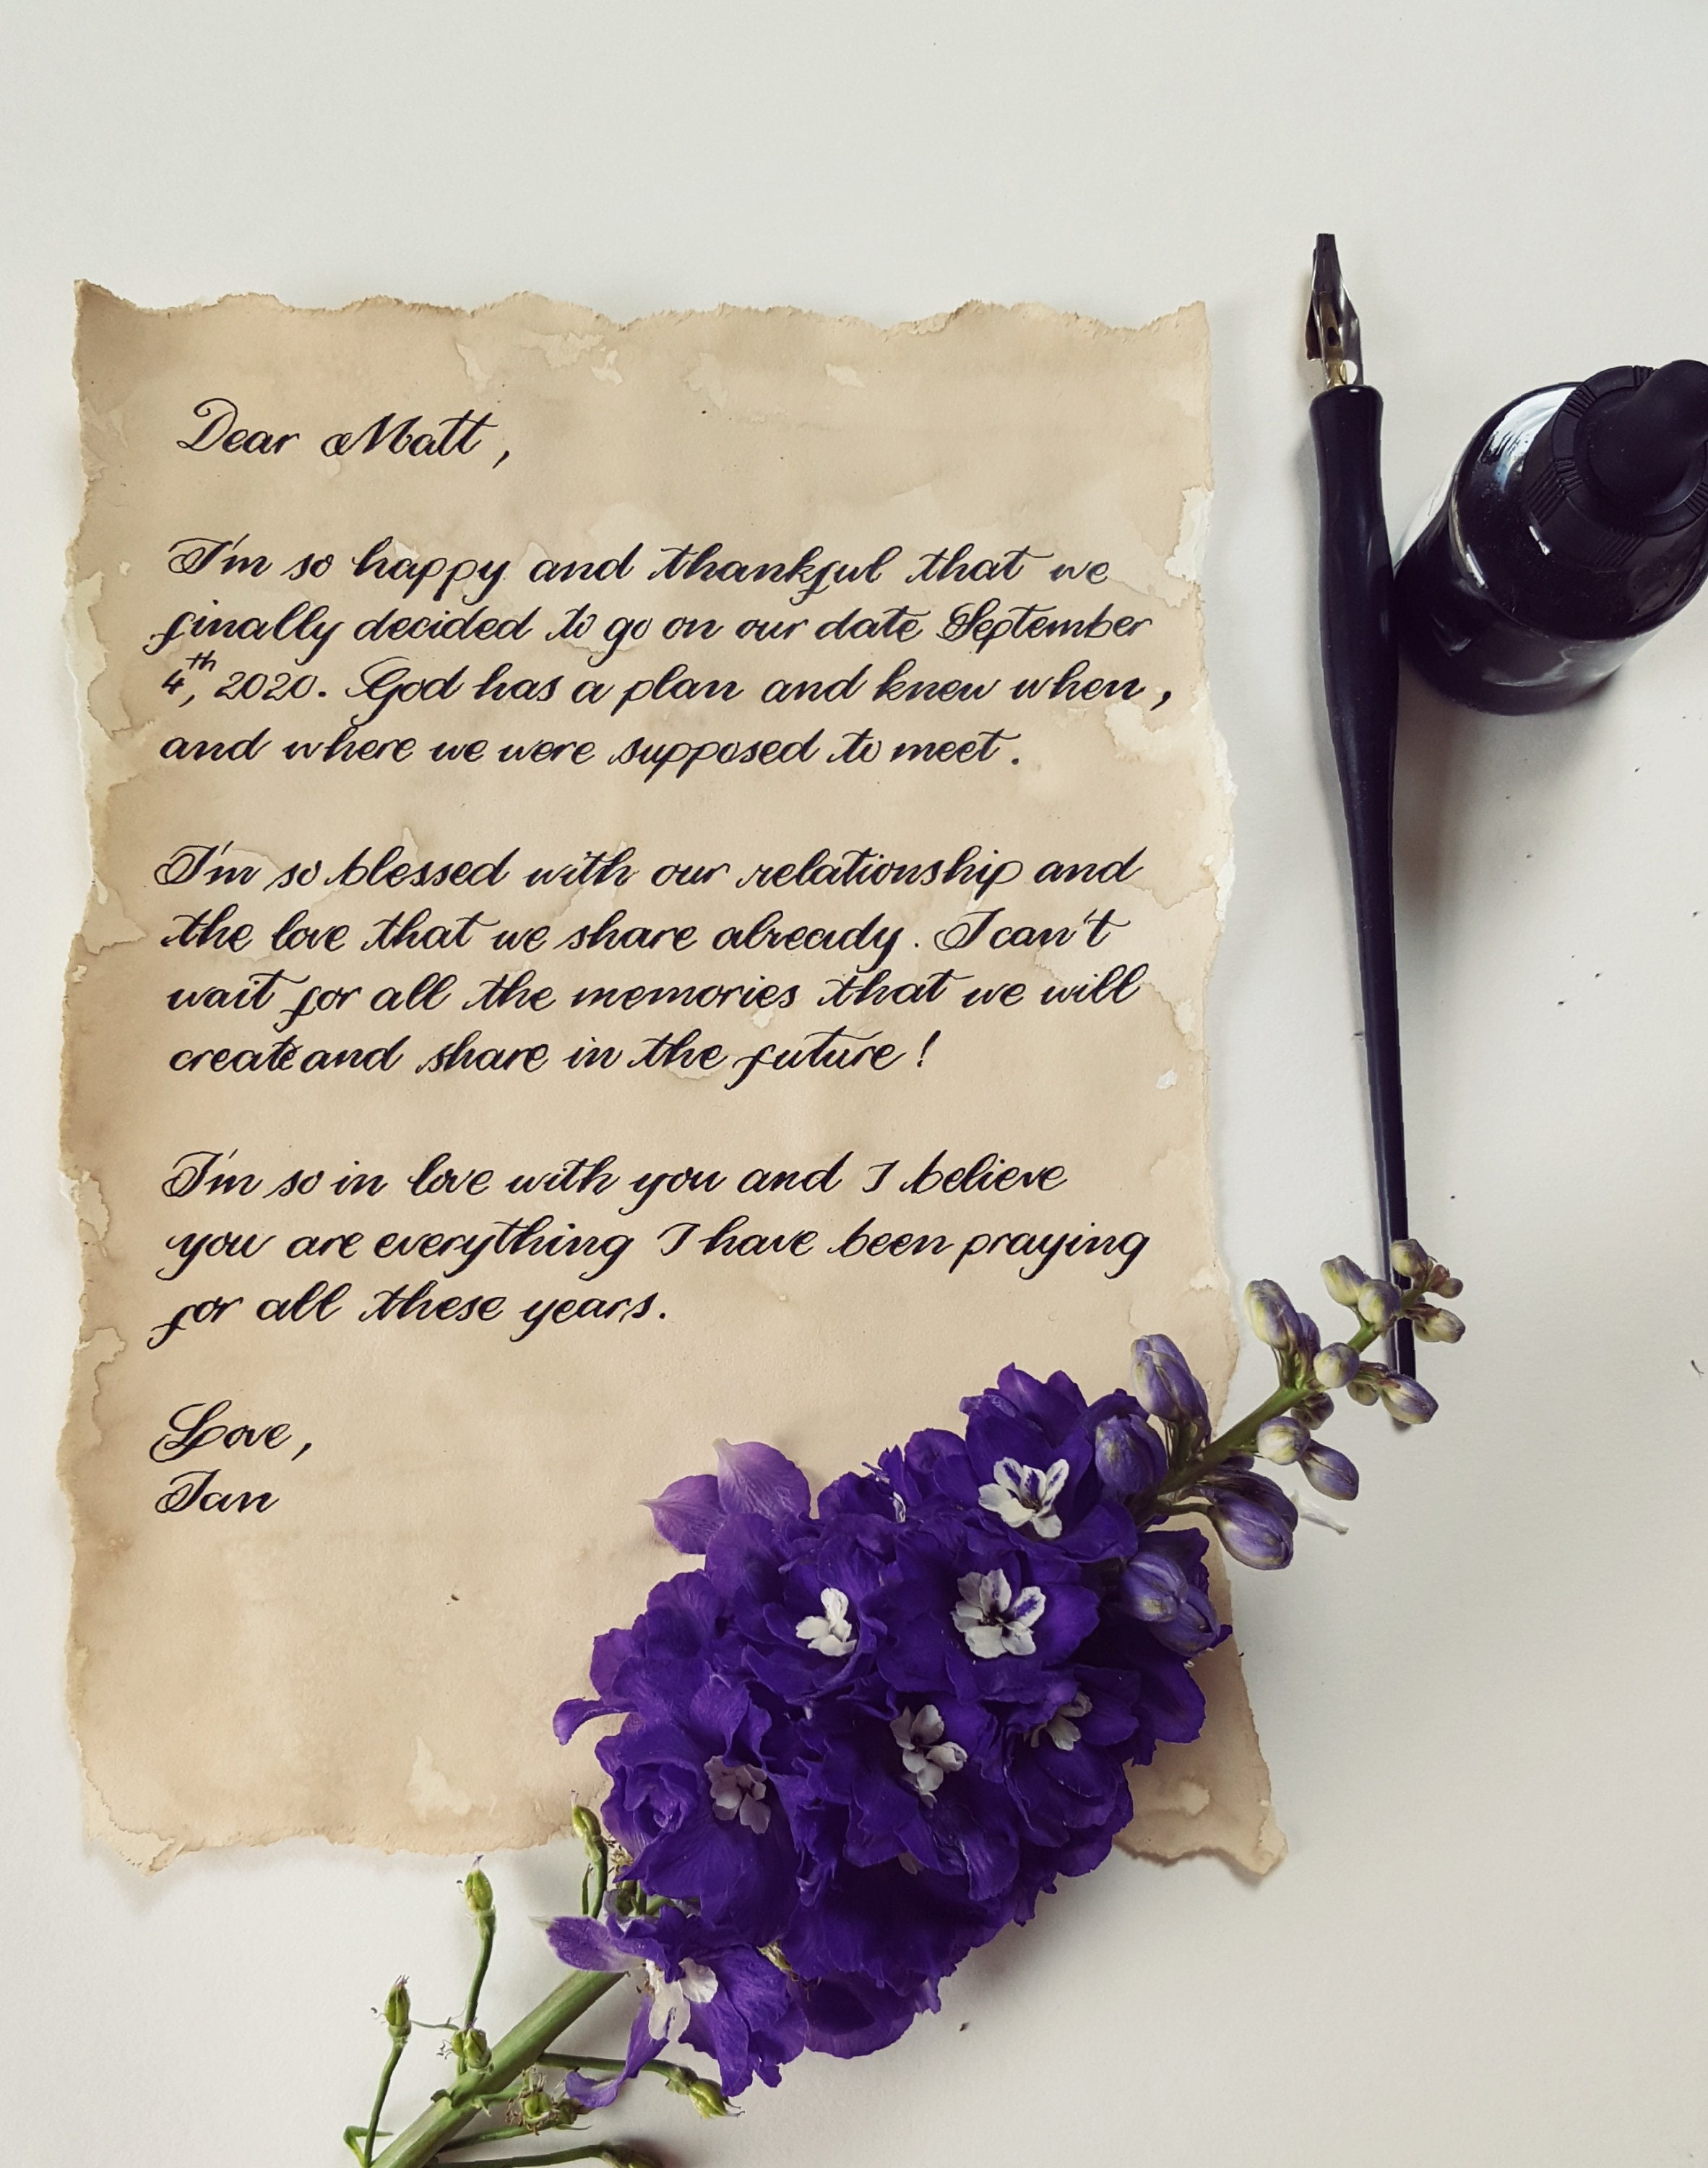 Dear Matt,
I'm so happy and thankful that we
finally decided to go on our date September
4th, 2020. God has a plan and knew when,
and where we were supposed to meet.
I'm so blessed with our relationship and
the love that we share already. I can't
wait for all the memories that we will
create and share in the future!
I'm so in love with you and I believe
you are everything I have been praying
for all these years.
Love,
Ian